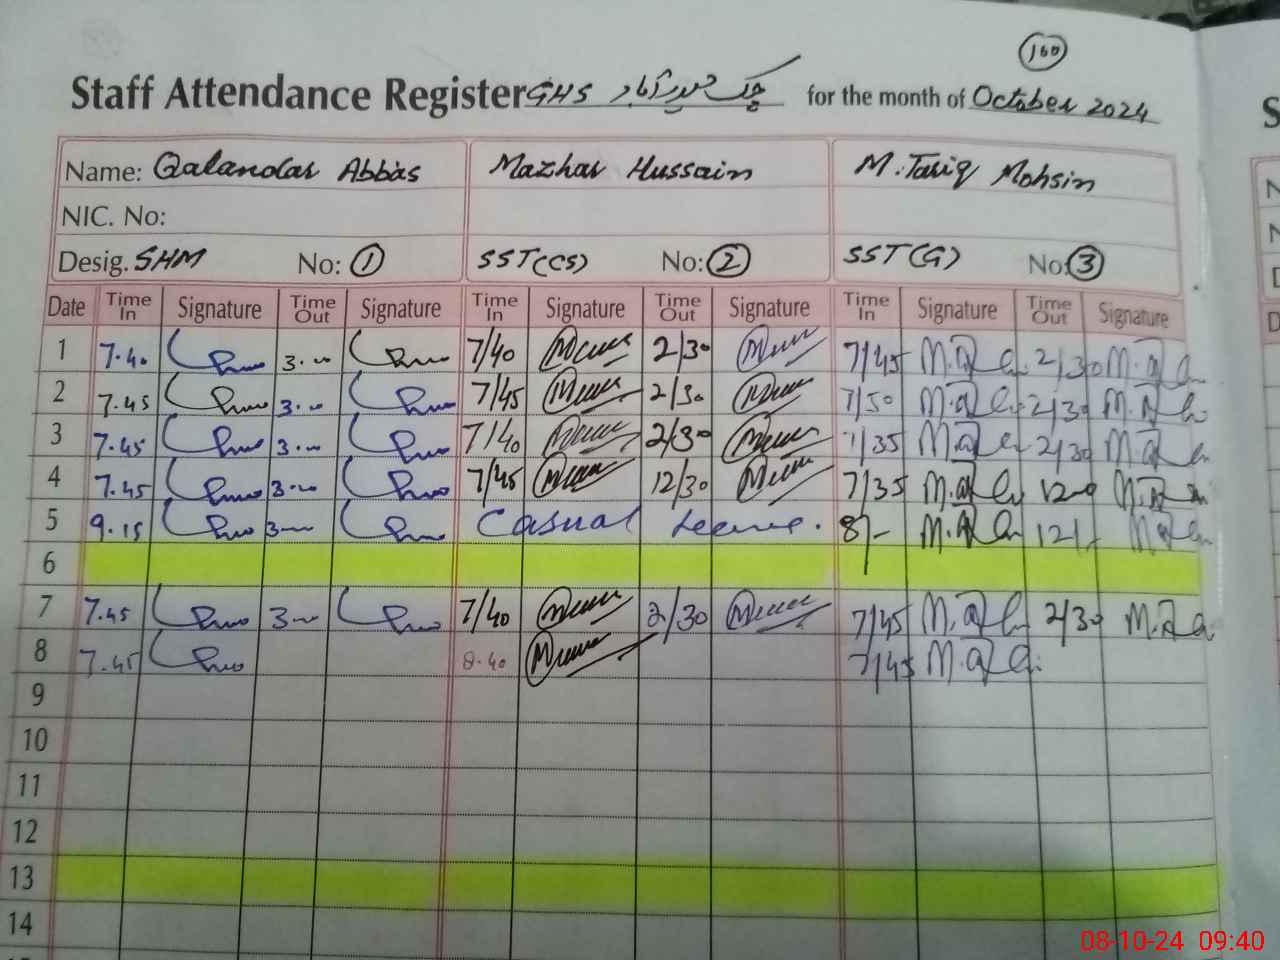 160
Staff Attendance Register GHS چک حیدرآباد for the month of October 2024
Name: Qalandar Abbas Mazhar Hussain M. Tariq Mohsin
NIC. No:
Desig. SHM No: 1 SST(CS) No: 2 SST(G) No: 3
Date Time In Signature Time Out Signature Time In Signature Time Out Signature Time In Signature Time Out Signature
1 7.40 3.00 7/40 2/30 7/45 2/30
2 7.45 3.00 7/45 2/30 7/50 2/30
3 7.45 3.00 7/40 2/30 7/35 2/30
4 7.45 3.00 7/45 12/30 7/35
5 9.15 3.00 Casual Leave. 8/- 12/-
6
7 7.45 3.00 7/40 2/30 7/45 2/30
8 7.45 8.40 7/45
9
10
11
12
13
14
08-10-24 09:40